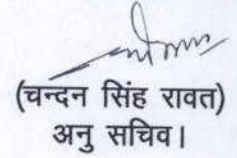 (चन्दन सिंह रावत)
अनु सचिव।